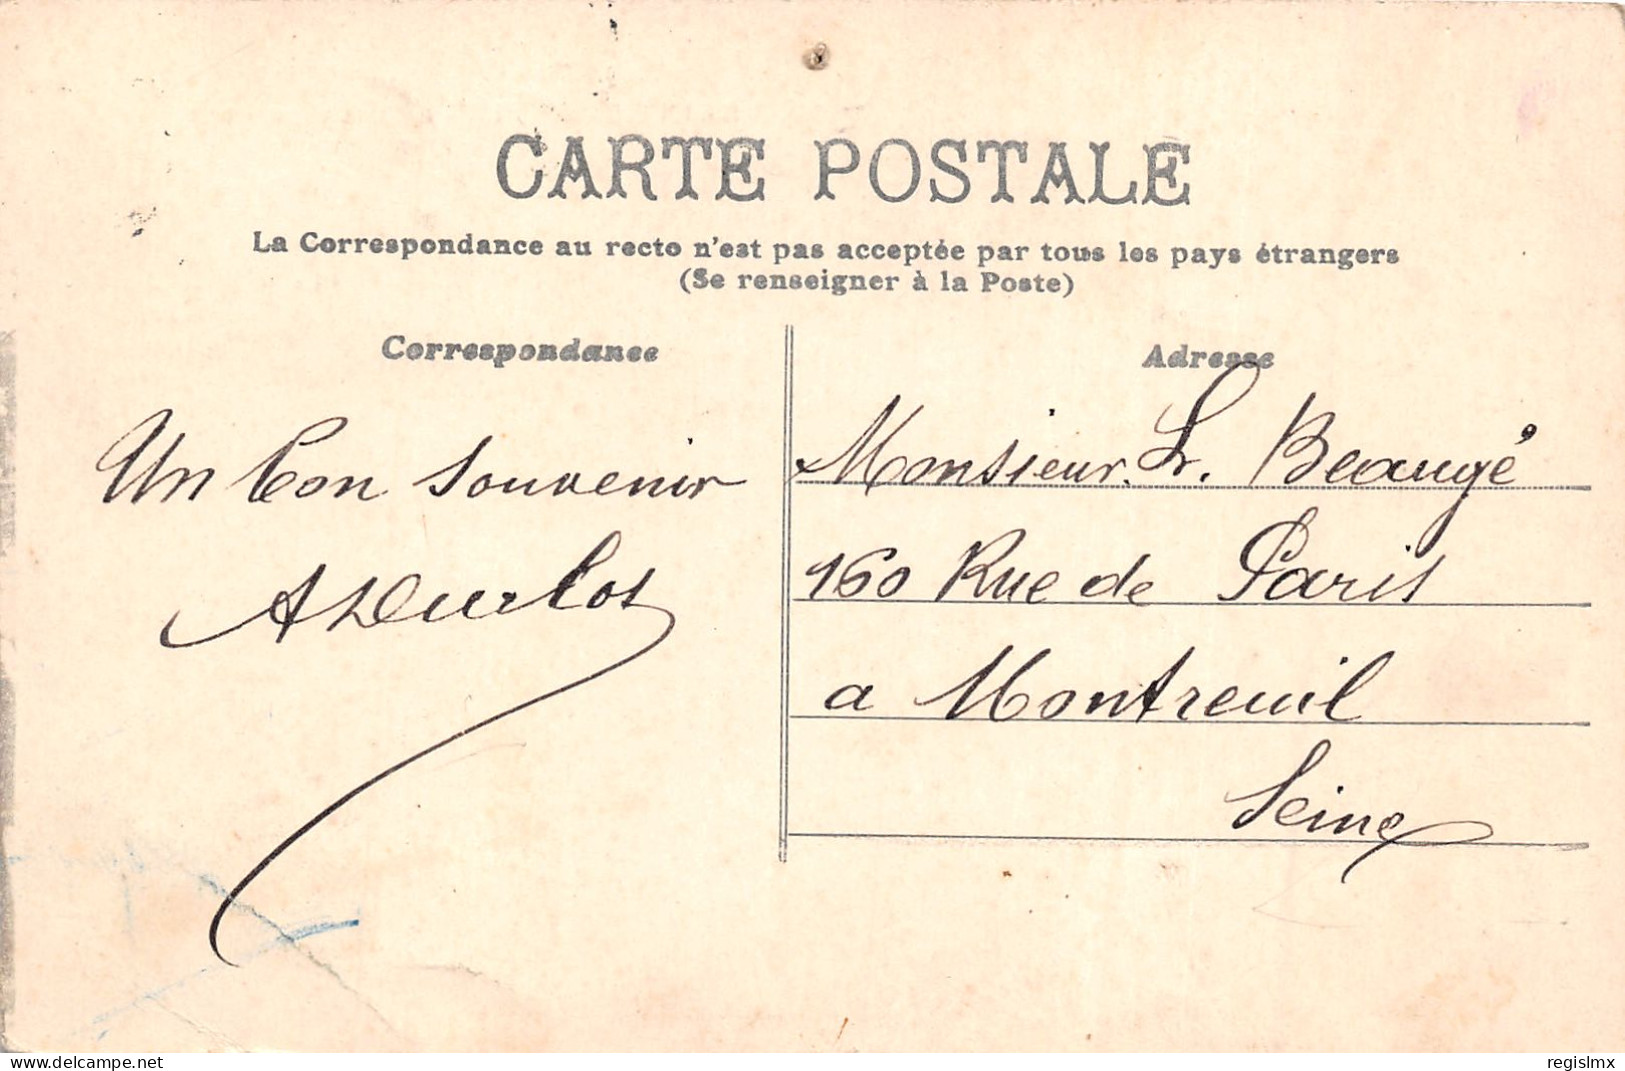 CARTE POSTALE
La Correspondance au recto n'est pas acceptée par tous les pays étrangers
(Se renseigner à la Poste)
Correspondance
Un bon souvenir
Adresse
Monsieur. L. Beaugé
160 Rue de Paris
a Montreuil
Seine
www.delcampe.net
regislmx